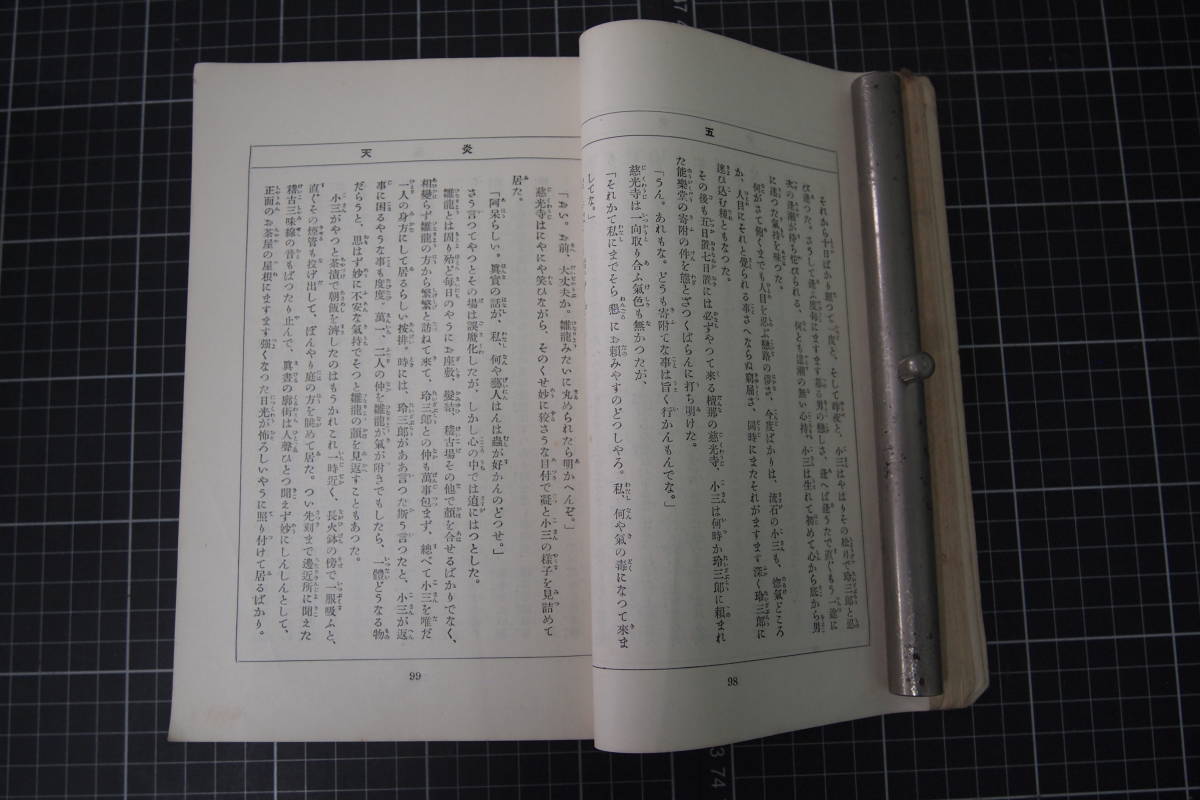 五
それから十日ばかり經つて一度、そして昨夜と、小三はやはりその松川で玲三郎と忍
び逢つた。さうして逢ふ度每にますます募る男の戀しさ、逢へば逢うたで直ぐもう一逢に
次の逢瀨が待ち侘びられる、何とも遣瀨の無い心持。小三は生れて初めて心から底から男
に逢つた氣持を味つた。
何がさて飽くまでも人目を忍ぶ戀路の傷さ、今度ばかりは、流石の小三も、惚氣どころ
か、人目にそれと覺られる事さへならぬ窮屈さ、同時にまたそれがますます深く玲三郎に
迷ひ込む種ともなつた。
その後も五日置七日置には必ずやつて來る檀那の慈光寺、小三は何時か玲三郎に賴まれ
た能樂堂の寄附の件を態とざつくばらんに打ち明けた。
「うん。あれもな。どうも寄附てな事は旨く行かんもんでな。」
慈光寺は一向取り合ふ氣色も無かつたが、
「それかて私にまでそら懇にお賴みやすのどつしやろ。私、何や氣の毒になつて來ま
してな。」
98
炎天
「おい。お前、大丈夫か。雛龍みたいに丸められたら明かへんぞ。」
慈光寺はにやにや笑ひながら、そのくせ妙に狡さうな目付で凝と小三の樣子を見詰めて
居た。
「阿呆らしい。眞實の話が、私、何や藝人はんは蟲が好かんのどつせ。」
さう言つてやつとその場は誤魔化したが、しかし心の中では遉にはつとした。
雛龍とは固り殆ど每日のやうにお座敷、髮結、稽古場その他で顏を合せるばかりでなく、
相變らず雛龍の方から繁繁と訪ねて來て、玲三郎との仲も萬事包まず、總べて小三を唯だ
一人の身方にして居るらしい按排。時には、玲三郎がああ言つた斯う言つたと、小三が返
事に困るやうな事も度度。萬一、二人の仲を雛龍が氣が附きでもしたら、一體どうなる物
だらうと、思はず妙に不安な氣持でそつと雛龍の顏を見返すこともあつた。
小三がやつと茶漬で朝飯を濟したのはもうかれこれ一時近く、長火鉢の傍で一服吸ふと、
直ぐその煙管も投げ出して、ぼんやり庭の方を眺めて居た。つい先刻まで邊近所に聞えた
稽古三味線の音もばつたり止んで、眞晝の廓街は人聲ひとつ聞えず妙にしんしんとして、
正面のお茶屋の屋根にますます强くなつた日光が怖ろしいやうに照り付けて居るばかり。
99